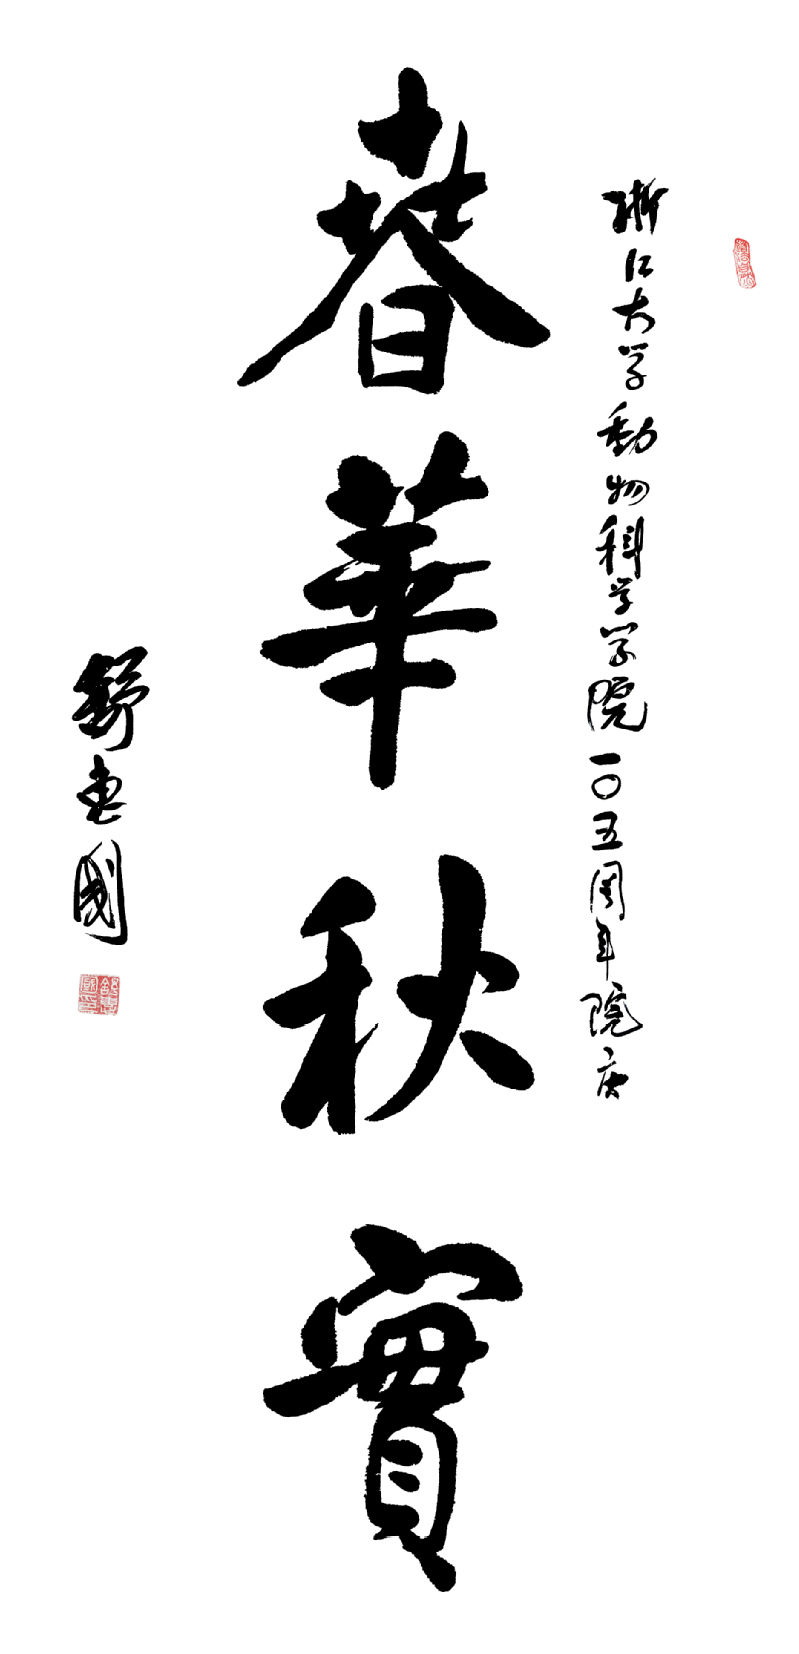 浙江大学動物科学学院一〇五周年院庆
春華秋實
舒惠國
舒惠國印